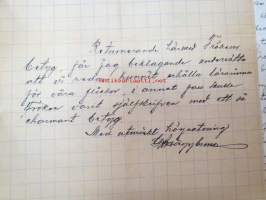 Returnerande härmed Fröken
betyg, får jag beklagande underrätta
att vi redan kunnat erhålla lärarinna
för våra flickor, i annat fall skulle
Fröken varit självskrifven med ett så
charmant betyg.
Med utmärkt högaktning